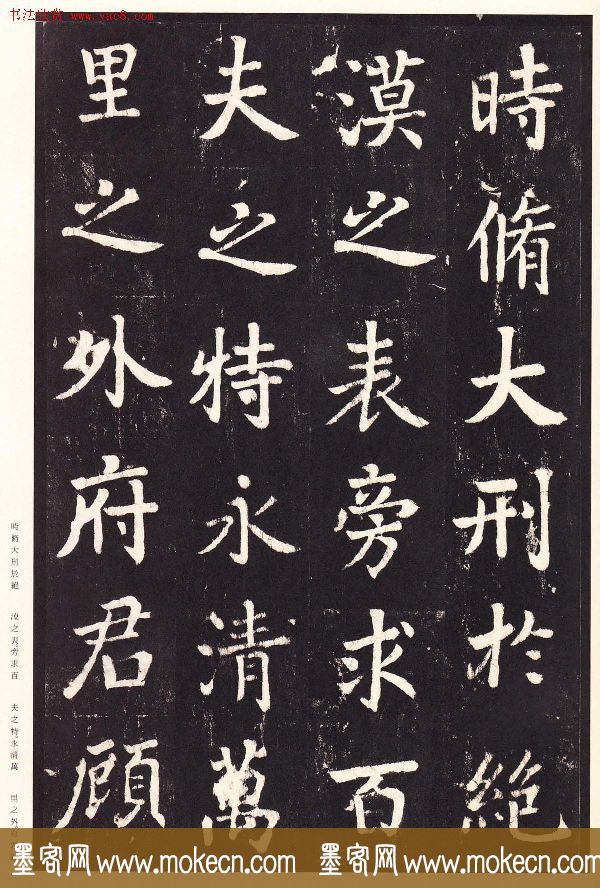 书法欣赏 www.yac8.com
時脩大刑於絕
漠之表旁求百
夫之特永清萬
里之外府君顧
時脩大刑於絕 漠之表旁求百 夫之特永清萬 里之外
墨客网 www.mokecn.com 墨客网 www.mokecn.com